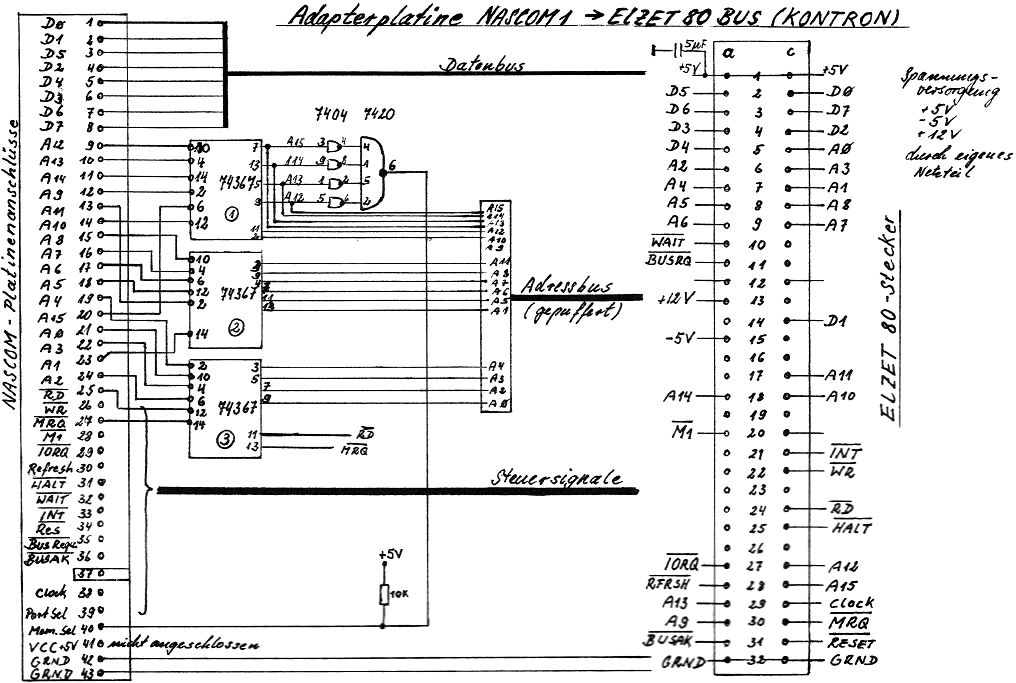 Adapterplatine NASCOM1 → ELZET 80 BUS (KONTRON)
NASCOM - Platinenanschlüsse
D0 1
D1 2
D5 3
D2 4
D4 5
D3 6
D6 7
D7 8
A12 9
A13 10
A14 11
A9 12
A11 13
A10 14
A8 15
A7 16
A6 17
A5 18
A4 19
A15 20
A0 21
A3 22
A1 23
A2 24
RD 25
WR 26
MRQ 27
M1 28
IORQ 29
Refresh 30
HALT 31
WAIT 32
INT 33
Res 34
BusRequ. 35
BUSAK 36
37
Clock 38
Port Sel 39
Mem. Sel 40
VCC +5V 41 nicht angeschlossen
GRND 42
GRND 43
Datenbus
7404 7420
A15 3 4 4
A14 9 8 1
A13 1 2 5
A12 5 6 2
6
10 7
4 13
14 74367 5
2 9
6 ①
12 11
2
10
4
6
12 74367
2
14 ②
2 3
10 5
4 7
6 74367 9
12
14 ③ 11 RD
13 MRQ
A15
A14
A13
A12
A10
A9
A11
A8
A7
A6
A5
A1
A4
A3
A2
A0
Adressbus
(gepuffert)
Steuersignale
+5V
10K
5µF
a c
+5V 1 +5V
D5 2 D0
D6 3 D7
D3 4 D2
D4 5 A0
A2 6 A3
A4 7 A1
A5 8 A8
A6 9 A7
WAIT 10
BUSRQ 11
12
+12V 13
14 D1
-5V 15
16
17 A11
A14 18 A10
19
M1 20
21 INT
22 WR
23
24 RD
25 HALT
26
IORQ 27 A12
RFRSH 28 A15
A13 29 Clock
A9 30 MRQ
BUSAK 31 RESET
GRND 32 GRND
ELZET 80 - Stecker
Spannungs-
versorgung
+5V
-5V
+12V
durch eigenes
Netzteil